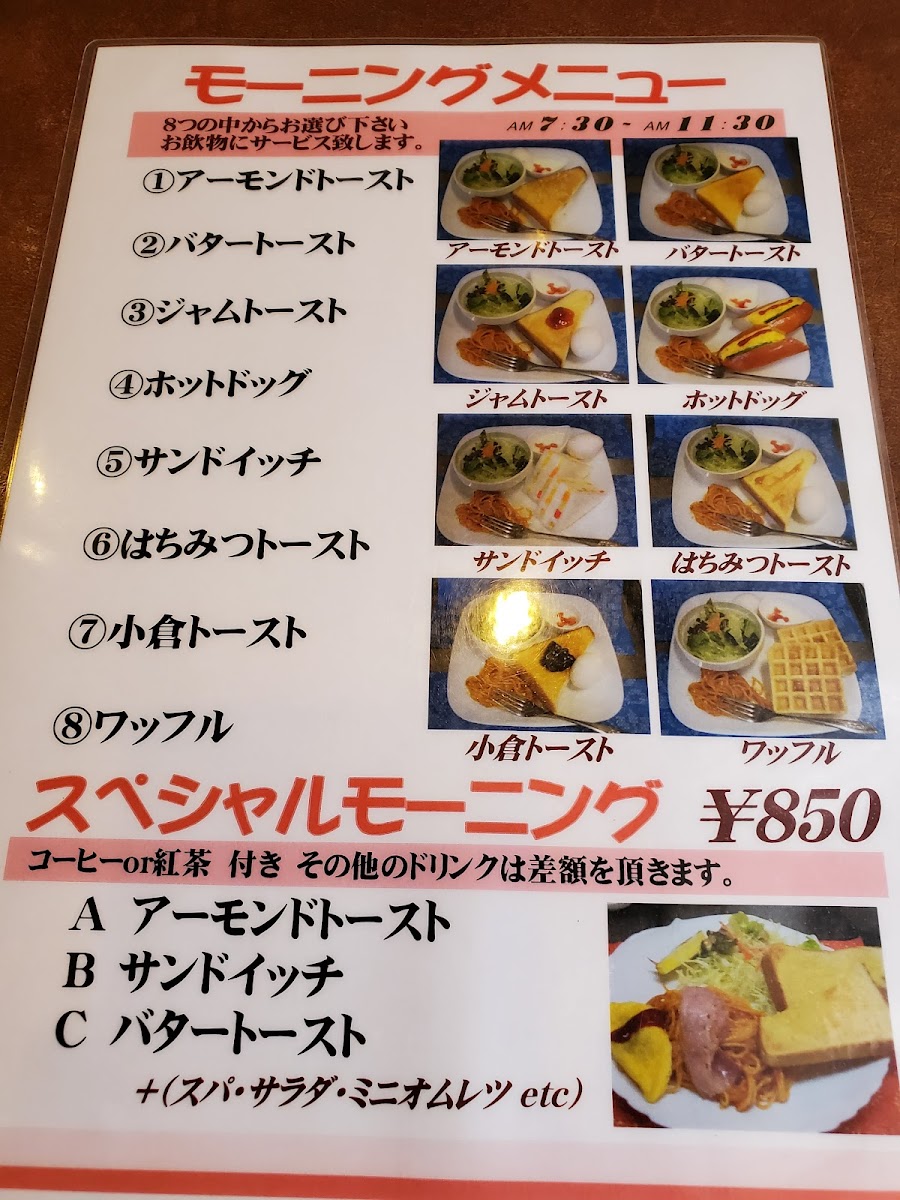 モーニングメニュー
8つの中からお選び下さい
お飲物にサービス致します。
AM 7:30 - AM 11:30
①アーモンドトースト
②バタートースト
③ジャムトースト
④ホットドッグ
⑤サンドイッチ
⑥はちみつトースト
⑦小倉トースト
⑧ワッフル
アーモンドトースト
バタートースト
ジャムトースト
ホットドッグ
サンドイッチ
はちみつトースト
小倉トースト
ワッフル
スペシャルモーニング ¥850
コーヒーor紅茶 付き その他のドリンクは差額を頂きます。
A アーモンドトースト
B サンドイッチ
C バタートースト
+(スパ・サラダ・ミニオムレツ etc)